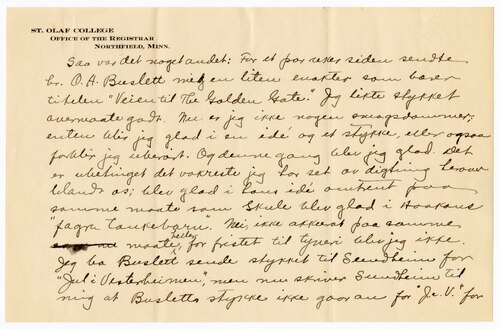 ST. OLAF COLLEGE
OFFICE OF THE REGISTRAR
NORTHFIELD, MINN.
Saa var det noget andet: For et par uker siden sendte
hr. O. A. Buslett mig en liten enakter som bærer
titelen "Veien til The Golden Gate." Jeg likte stykket
overmaate godt. Nu er jeg ikke nogen smagsdommer;
enten blir jeg glad i en idé og et stykke, eller ogsaa
forblir jeg uberørt. Og denne gang blev jeg glad. Det
er ubetinget det vakreste jeg har set av digtning herover
blandt os; blev glad i hans idé omtrent paa
samme maate som Skule blev glad i Haakons
"fagra tankebarn". Nei, ikke akkurat paa samme
maate heller, for fristet til tyveri blev jeg ikke.
Jeg ba Buslett sende stykket til Sundheim for
"Jul i Vesterheimen", men nu skriver Sundheim til
mig at Busletts stykke ikke gaar an for "J. i V." for